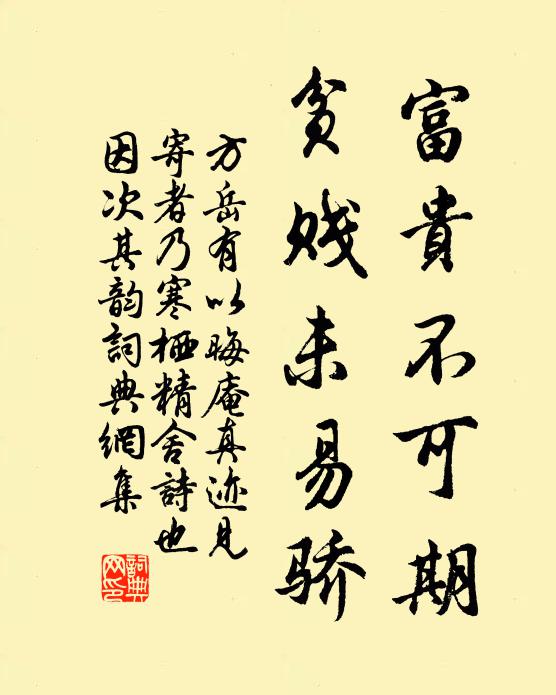 富貴不可期
貧贱未易骄
方岳有以晦庵真迹見
寄者乃寒栖精舍詩也
因次其韵詞典網集
詞典
网印